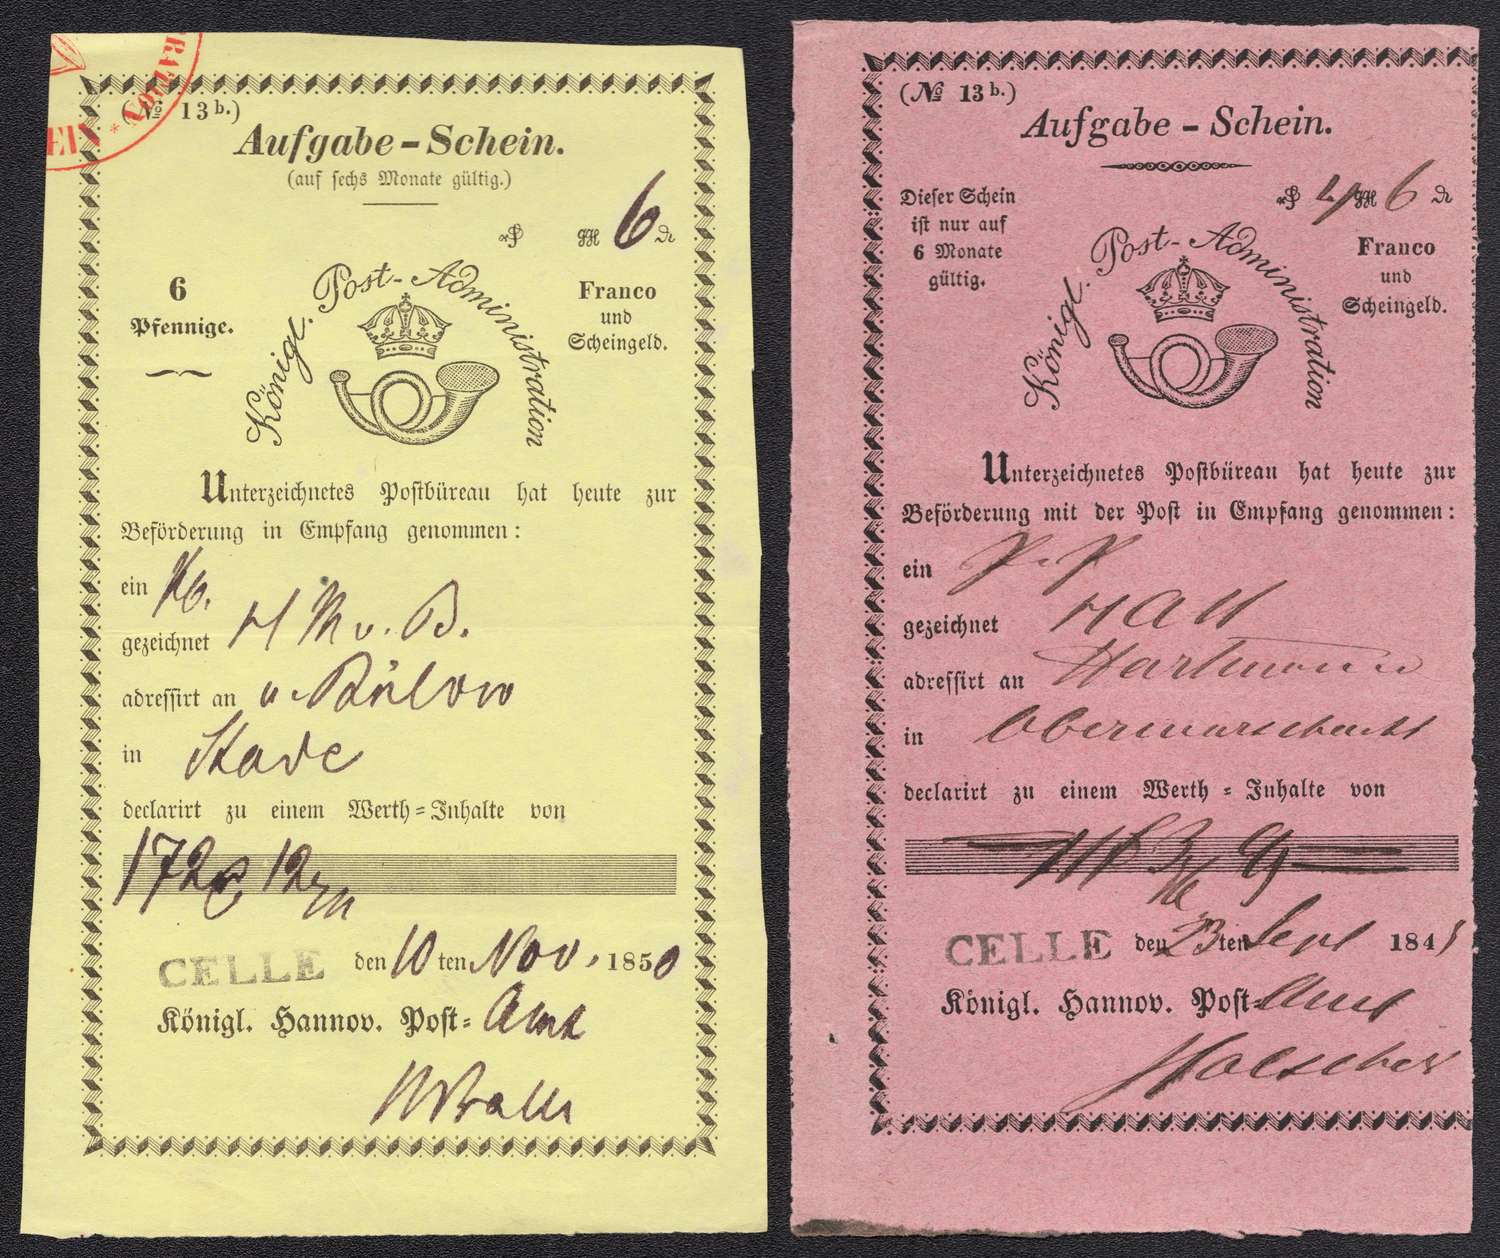 (№ 13 b.)
Aufgabe-Schein.
(auf sechs Monate gültig.)
6
6
Pfennige.
Franco
und
Scheingeld.
Königl. Post-Administration
Unterzeichnetes Postbüreau hat heute zur
Beförderung in Empfang genommen:
ein
gezeichnet H M v. B.
adressirt an v. Bülow
in Stade
declarirt zu einem Werth-Inhalte von
172 12
CELLE den 10 ten Nov. 1850
Königl. Hannov. Post-Amt
(№ 13 b.)
Aufgabe-Schein.
Dieser Schein
ist nur auf
6 Monate
gültig.
4 6
Franco
und
Scheingeld.
Königl. Post-Administration
Unterzeichnetes Postbüreau hat heute zur
Beförderung mit der Post in Empfang genommen:
ein
gezeichnet
adressirt an Hartmann
in Obermarschacht
declarirt zu einem Werth-Inhalte von
CELLE den 23 ten Sept 184
Königl. Hannov. Post-Amt